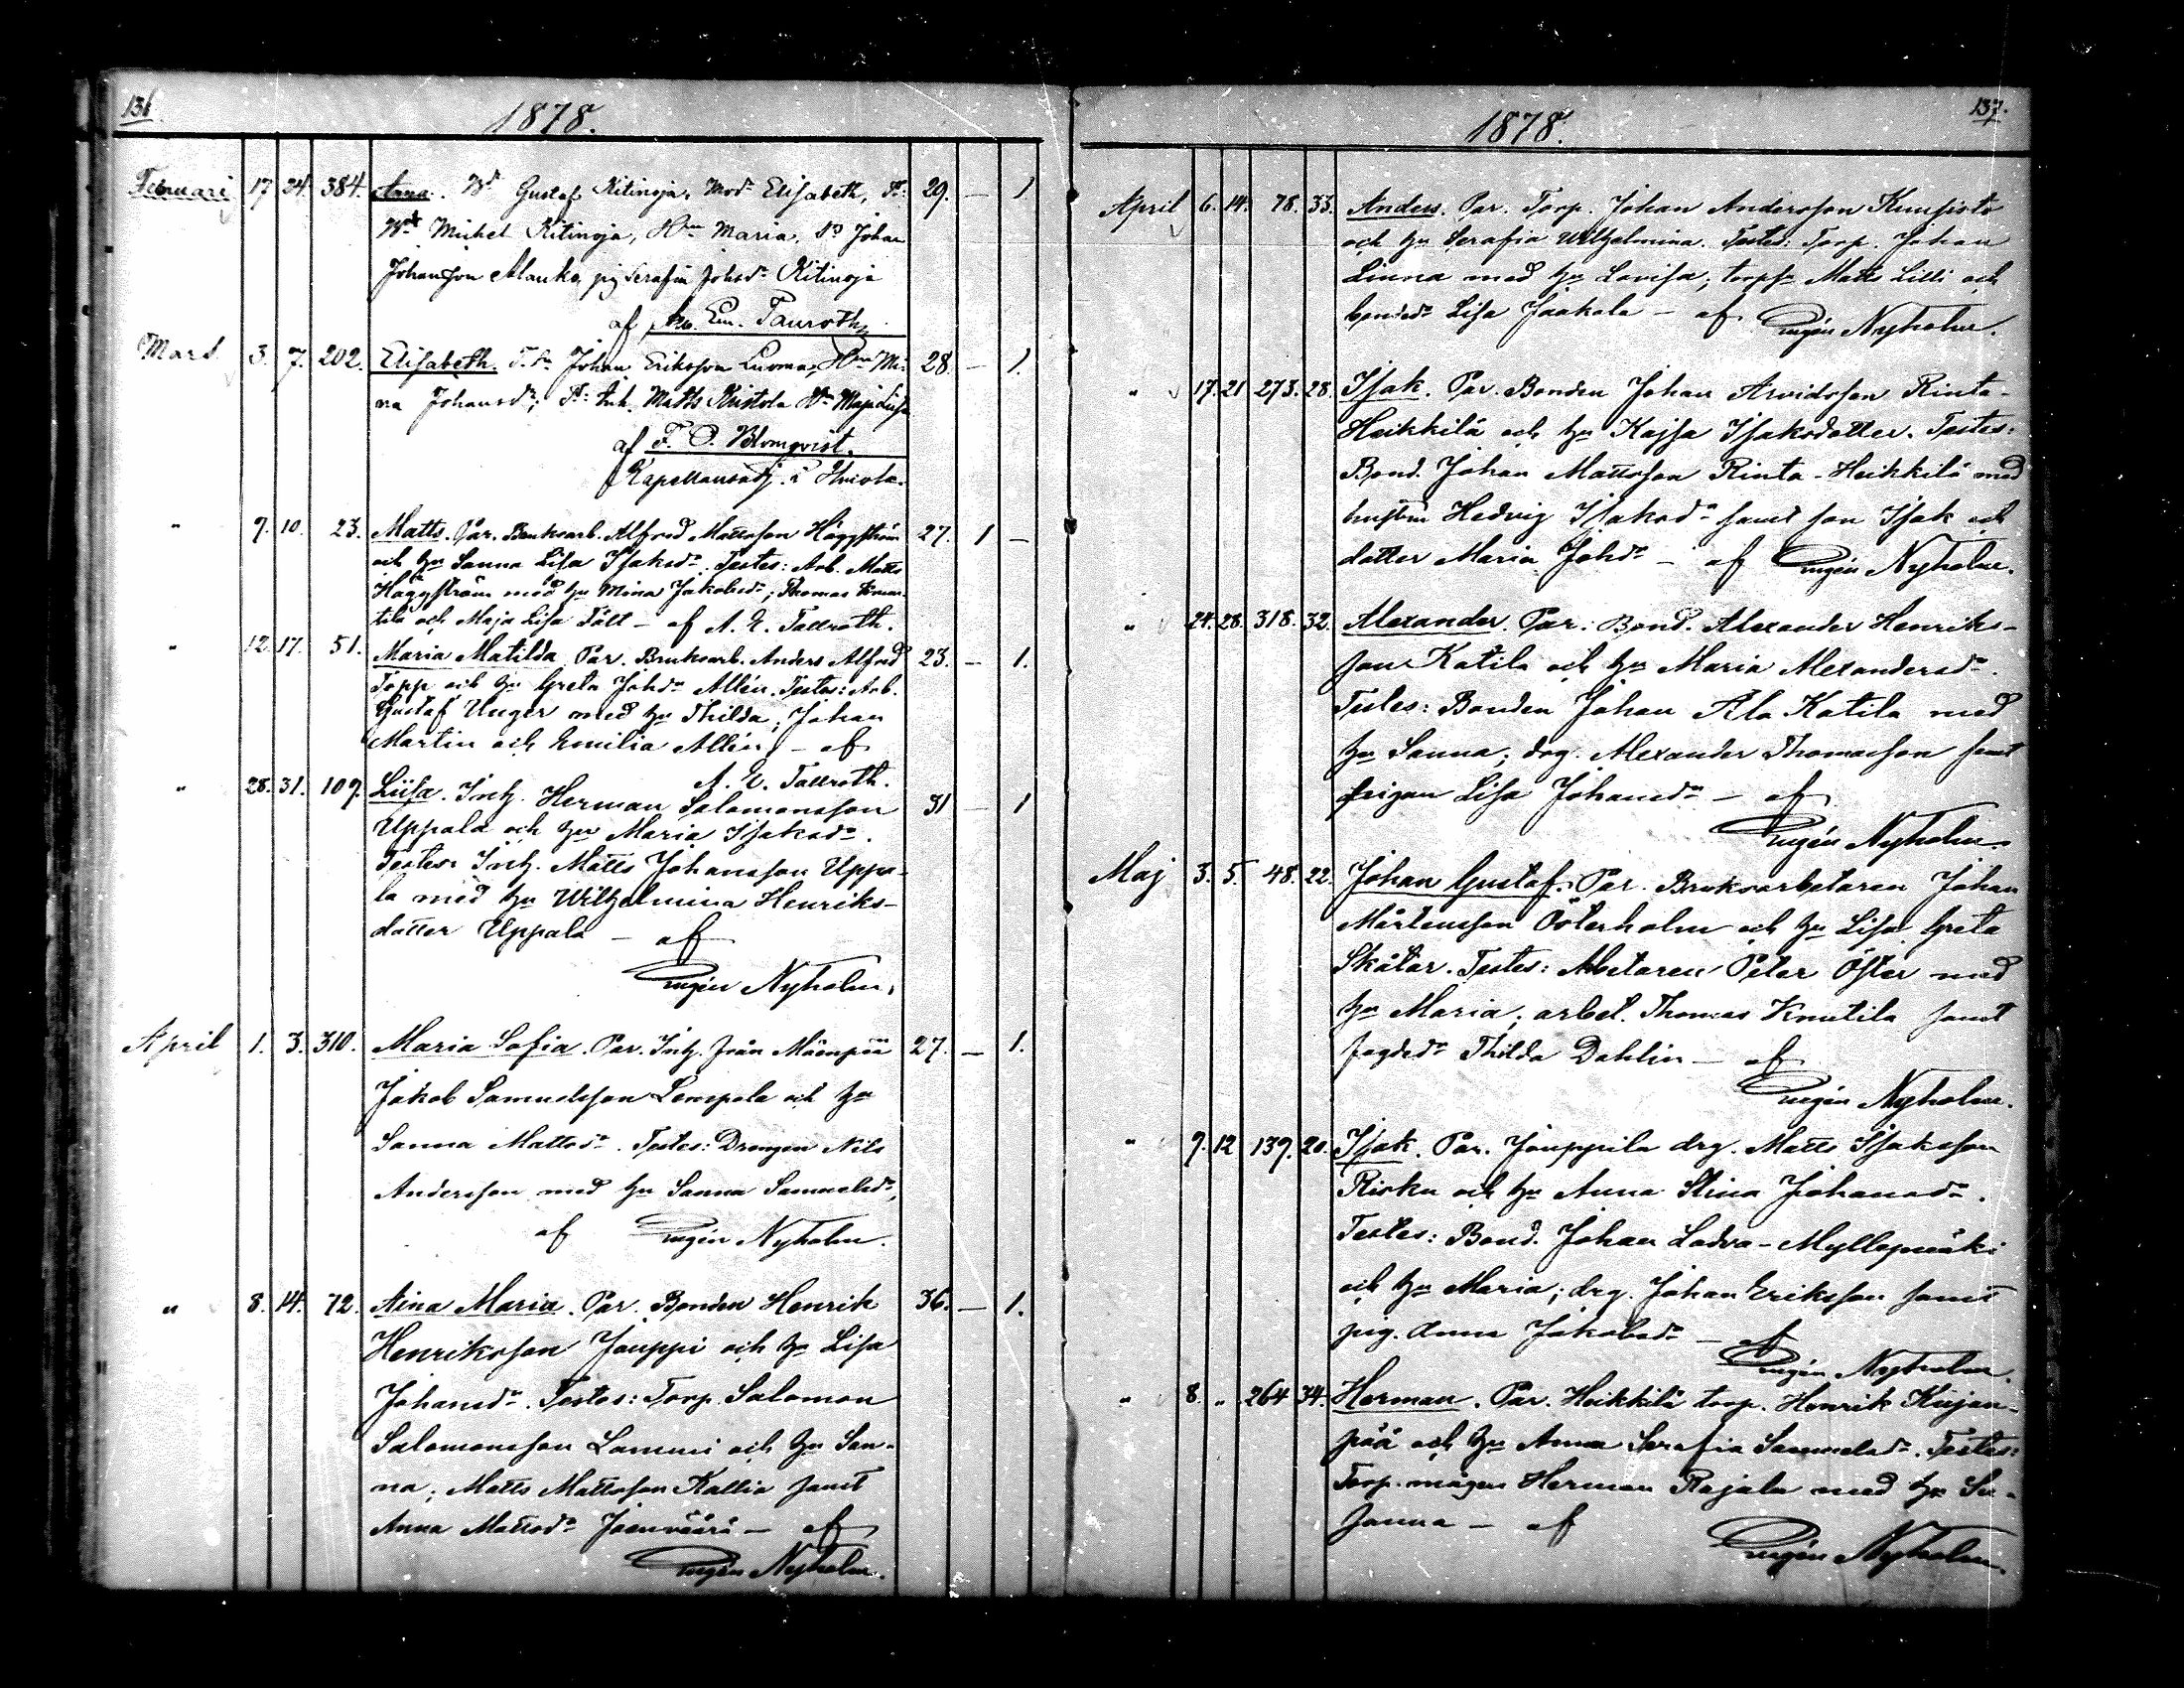 136.
1878.
Februari 17 24. 384. Anna. Bd. Gustaf Ritinoja, Mod. Elisabeth, T: 29. — 1
Michel Ritinoja, Hun Maria, Johan
Johansson Alanko, pig Serafin Johsdr. Ritinoja
af Em. Tauroth
Mars 3. 7. 202. Elisabeth. Johan Eriksson Luoma, Hun Mi- 28. — 1.
na Johansdr; T: Inh. Matts Ristola Hn Maja Lisa
af F. O. Blomqvist.
Kapellansadj. i
" 9. 10. 23. Matts. Par. Bruksarb. Alfred Mattsson Häggström 27. 1 —
och hu Sanna Lisa Isaksdr. Testes: Arb. Matts
Häggström med hu Mina Jakobsdr; Thomas
tila och Maja Lisa Fält — af A. E. Tallroth.
" 12. 17. 51. Maria Matilda. Par. Bruksarb. Anders Alfred 23. — 1.
Topp och hu Greta Johdr Allén. Testes: Arb.
Gustaf Unger med hu Thilda; Johan
Martin och Emilia Allén — af
A. E. Tallroth.
" 28. 31. 109. Liisa. Inh. Herman Salomonsson 31 — 1
Uppala och hu Maria Isaksdr.
Testes: Inh. Matts Johansson Uppa-
la med hu Wilhelmina Henriks-
dotter Uppala — af
Eugén Nyholm.
April 1. 3. 310. Maria Sofia. Par. Inh. från Mäenpää 27. — 1.
Jakob Samuelsson Lempola och hu
Sanna Mattsdr. Testes: Drengen Nils
Andersson med hu Sanna Samuelsdr,
af Eugén Nyholm.
" 8. 14. 72. Aina Maria. Par. Bonden Henrik 36. — 1.
Henriksson Jouppi och hu Lisa
Johansdr. Testes: Torp. Salomon
Salomonsson Lammi och hu San-
na; Matts Mattsson Kallio samt
Anna Mattsdr Joenvääri — af
Eugén Nyholm.
137.
1878.
April 6. 14. 78. 33. Anders. Par. Torp. Johan Andersson Kuusisto
och hu Serafia Wilhelmina. Testes: Torp. Johan
Linna med hu Lovisa; torps Matts Lilli och
bondedr Lisa Jaakola — af Eugén Nyholm.
" 17. 21 273. 28. Isak. Par. Bonden Johan Arvidsson Rinta-
Heikkilä och hu Kajsa Isaksdotter. Testes:
Bond. Johan Mattsson Rinta-Heikkilä med
hustru Hedvig Isaksdr samt son Isak och
dotter Maria Johdr — af Eugén Nyholm.
" 24. 28. 318. 32. Alexander. Par: Bond. Alexander Henriks-
son Katila och hu Maria Alexandersdr.
Testes: Bonden Johan Ala Katila med
hu Sanna; drg. Alexander Thomasson samt
pigan Lisa Johansdr — af
Eugén Nyholm.
Maj 3. 5. 48. 22. Johan Gustaf. Par. Bruksarbetaren Johan
Mårtensson Österholm och hu Lisa Greta
Skåtar. Testes: Arbetaren Peter Öster med
hu Maria; arbet. Thomas Knutila samt
fogdedr Thilda Dahlin — af
Eugén Nyholm.
" 9. 12 139. 20. Isak. Par. Jouppila drg. Matts Isaksson
Risku och hu Anna Stina Johansdr.
Testes: Bond. Johan Ladva-Myllymäki
och hu Maria; drg. Johan Eriksson samt
pig. Anna Jakobsdr — af
Eugén Nyholm.
" 8. " 264 34. Herman. Par. Heikkilä torp. Henrik Kujan-
pää och hu Anna Serafia Samuelsdr. Testes:
Torp. mågen Herman Rajala med hu Su-
sanna — af
Eugén Nyholm.